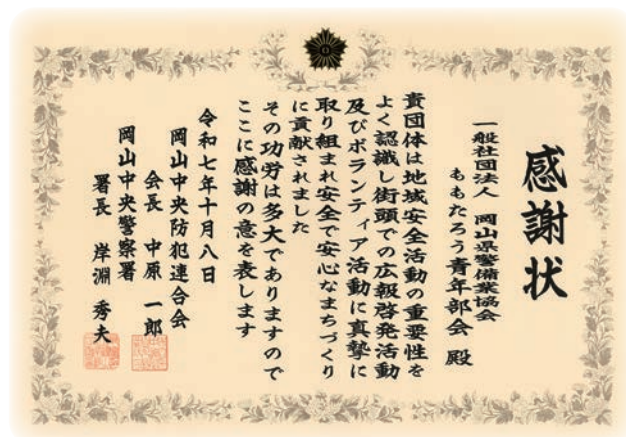 感謝状
一般社団法人 岡山県警備業協会
ももたろう青年部会 殿
貴団体は地域安全活動の重要性を
よく認識し街頭での広報啓発活動
及びボランティア活動に真摯に
取り組まれ安全で安心なまちづくり
に貢献されました
その功労は多大でありますので
ここに感謝の意を表します
令和七年十月八日
岡山中央防犯連合会
会長 中原 一郎
岡山中央警察署
署長 岸淵 秀夫